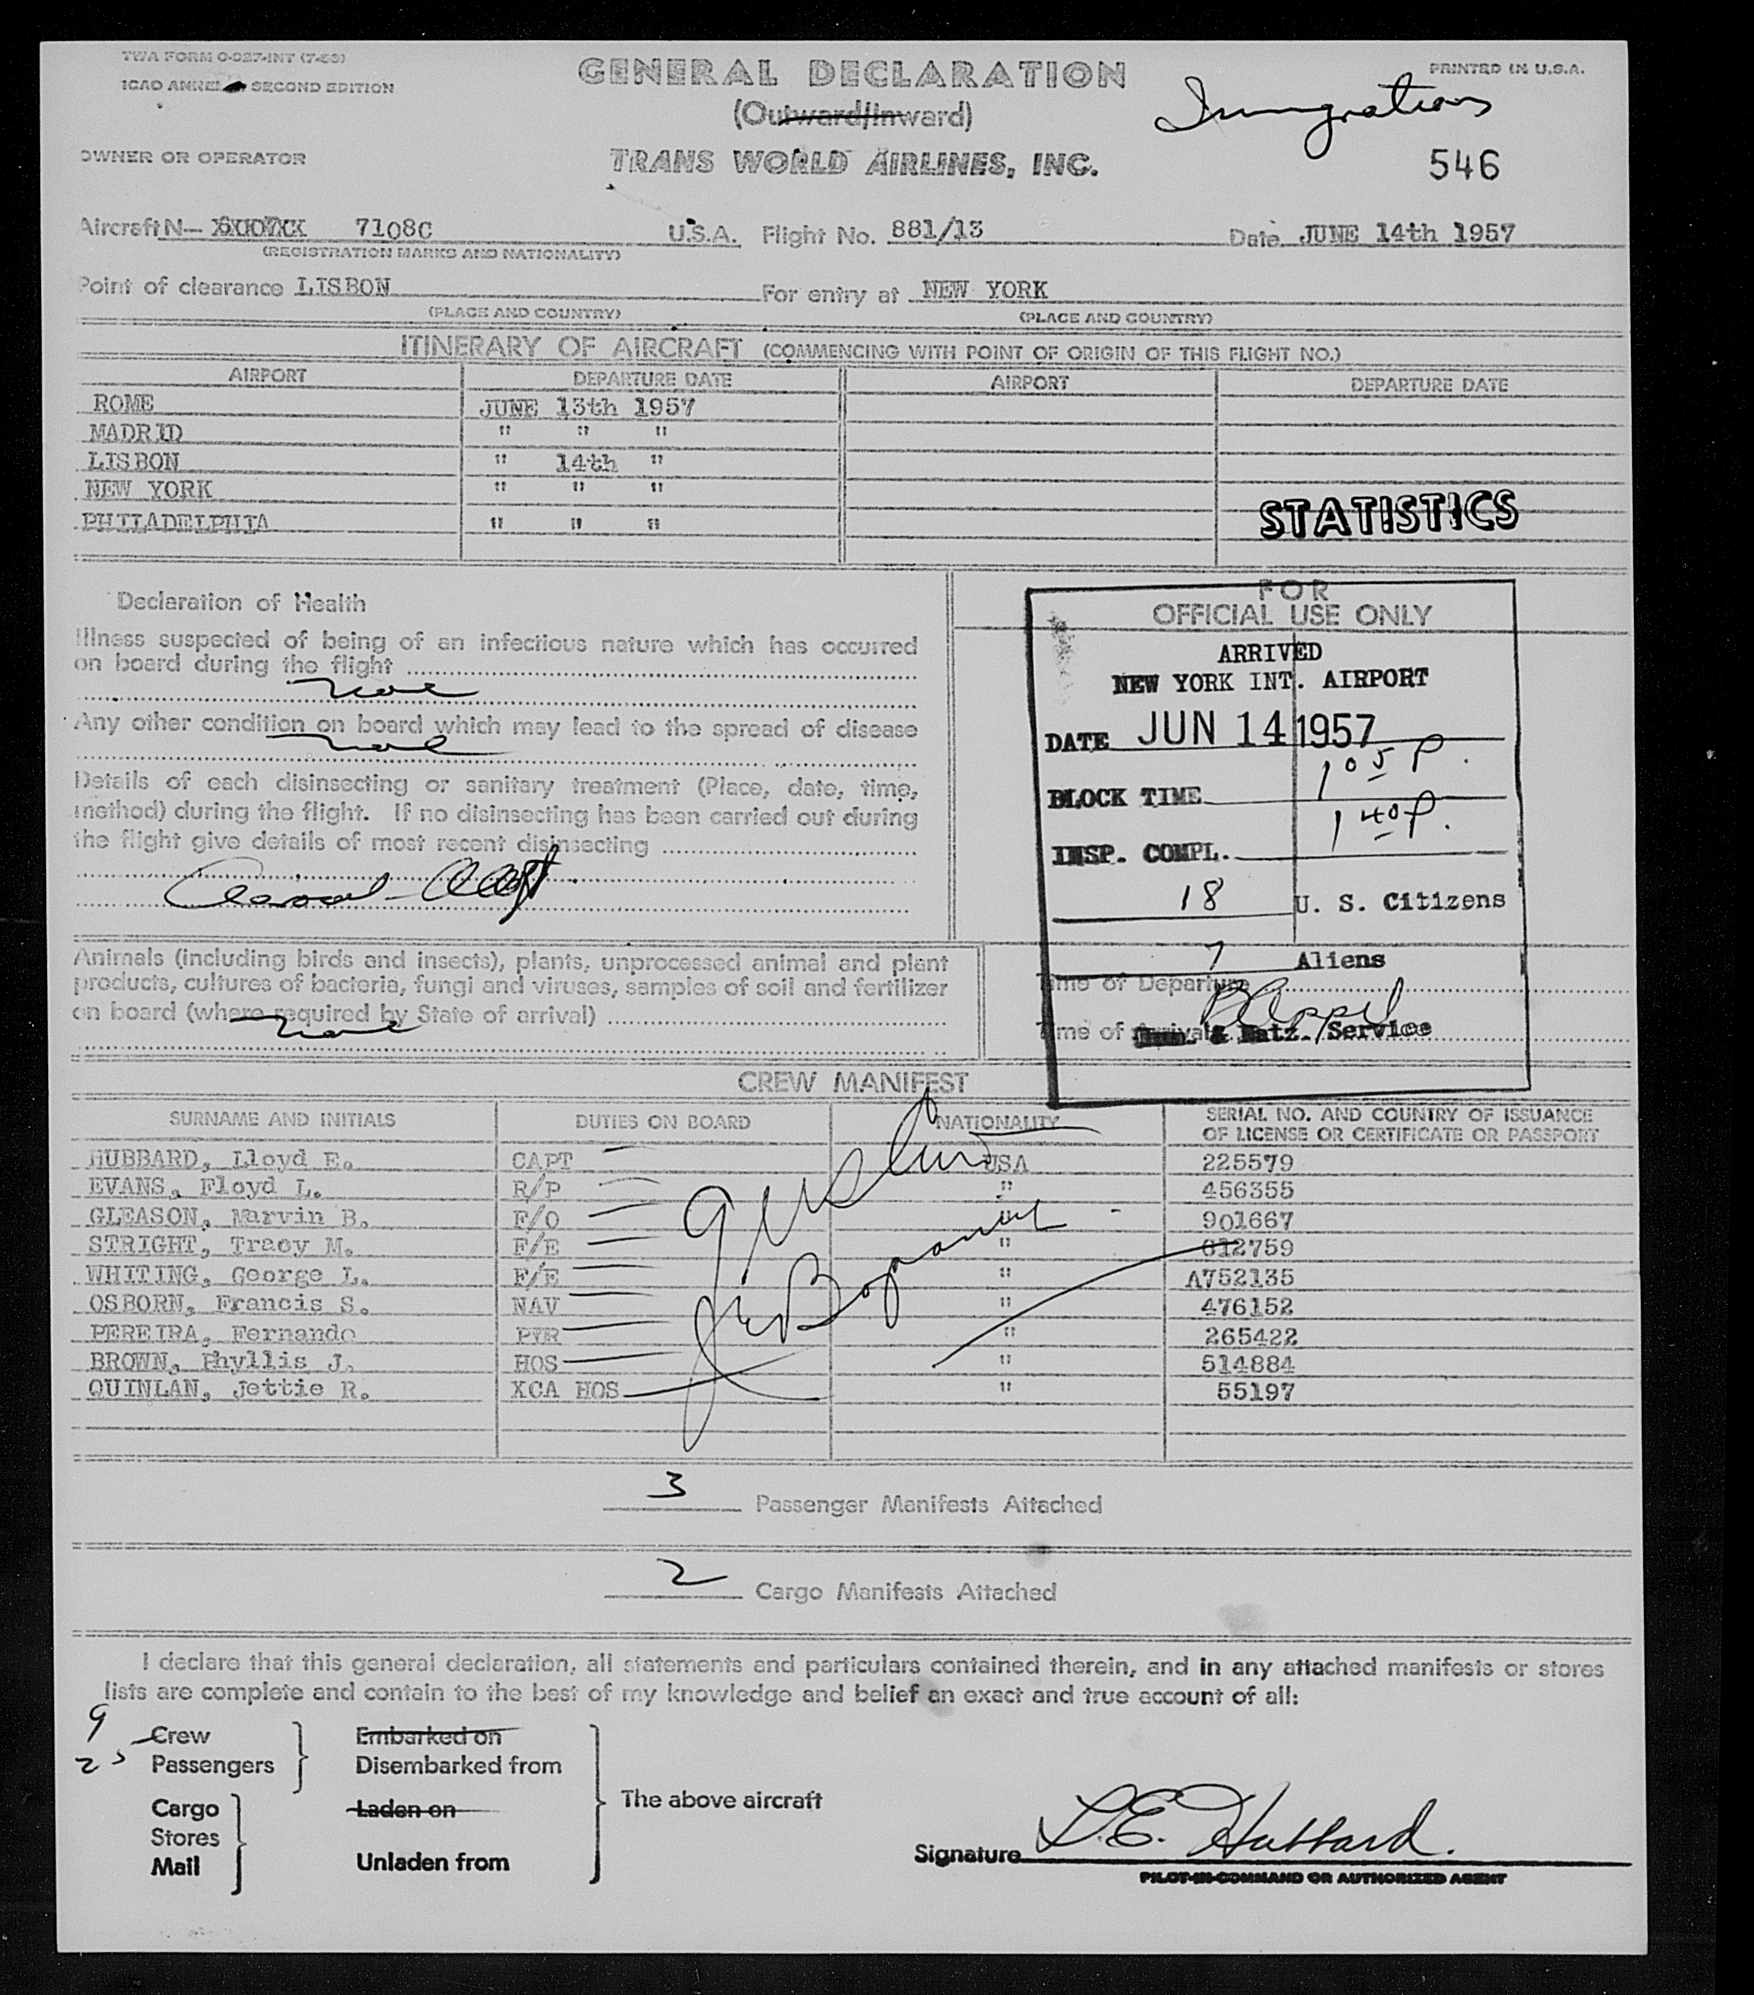 TWA FORM O-027-INT (7-53)
ICAO ANNEX SECOND EDITION
GENERAL DECLARATION
(Outward/Inward)
PRINTED IN U.S.A.
Immigration
OWNER OR OPERATOR
TRANS WORLD AIRLINES, INC.
546
Aircraft N— 7108C U.S.A. Flight No. 881/13 Date JUNE 14th 1957
(REGISTRATION MARKS AND NATIONALITY)
Point of clearance LISBON For entry at NEW YORK
(PLACE AND COUNTRY) (PLACE AND COUNTRY)
ITINERARY OF AIRCRAFT (COMMENCING WITH POINT OF ORIGIN OF THIS FLIGHT NO.)
AIRPORT DEPARTURE DATE AIRPORT DEPARTURE DATE
ROME JUNE 13th 1957
MADRID " " "
LISBON " 14th "
NEW YORK " " "
PHILADELPHIA " " "
STATISTICS
Declaration of Health
Illness suspected of being of an infectious nature which has occurred
on board during the flight
None
Any other condition on board which may lead to the spread of disease
None
Details of each disinsecting or sanitary treatment (Place, date, time,
method) during the flight. If no disinsecting has been carried out during
the flight give details of most recent disinsecting
Animals (including birds and insects), plants, unprocessed animal and plant
products, cultures of bacteria, fungi and viruses, samples of soil and fertilizer
on board (where required by State of arrival)
None
FOR
OFFICIAL USE ONLY
ARRIVED
NEW YORK INT. AIRPORT
DATE JUN 14 1957
BLOCK TIME 1 05 P.
INSP. COMPL. 1 40 P.
18 U. S. Citizens
7 Aliens
Time of Departure
Time of Arrival
Imm. & Natz. Service
CREW MANIFEST
SURNAME AND INITIALS DUTIES ON BOARD NATIONALITY SERIAL NO. AND COUNTRY OF ISSUANCE
OF LICENSE OR CERTIFICATE OR PASSPORT
HUBBARD, Lloyd E. CAPT USA 225579
EVANS, Floyd L. R/P " 456355
GLEASON, Marvin B. F/O " 901667
STRIGHT, Tracy M. F/E " 612759
WHITING, George L. F/E " A752135
OSBORN, Francis S. NAV " 476152
PEREIRA, Fernando PUR " 265422
BROWN, Phyllis J. HOS " 514884
QUINLAN, Jettie R. XCA HOS " 55197
3 Passenger Manifests Attached
2 Cargo Manifests Attached
I declare that this general declaration, all statements and particulars contained therein, and in any attached manifests or stores
lists are complete and contain to the best of my knowledge and belief an exact and true account of all:
9 Crew Embarked on
25 Passengers Disembarked from
The above aircraft
Cargo Laden on
Stores
Mail Unladen from
Signature L.E. Hubbard.
PILOT-IN-COMMAND OR AUTHORIZED AGENT